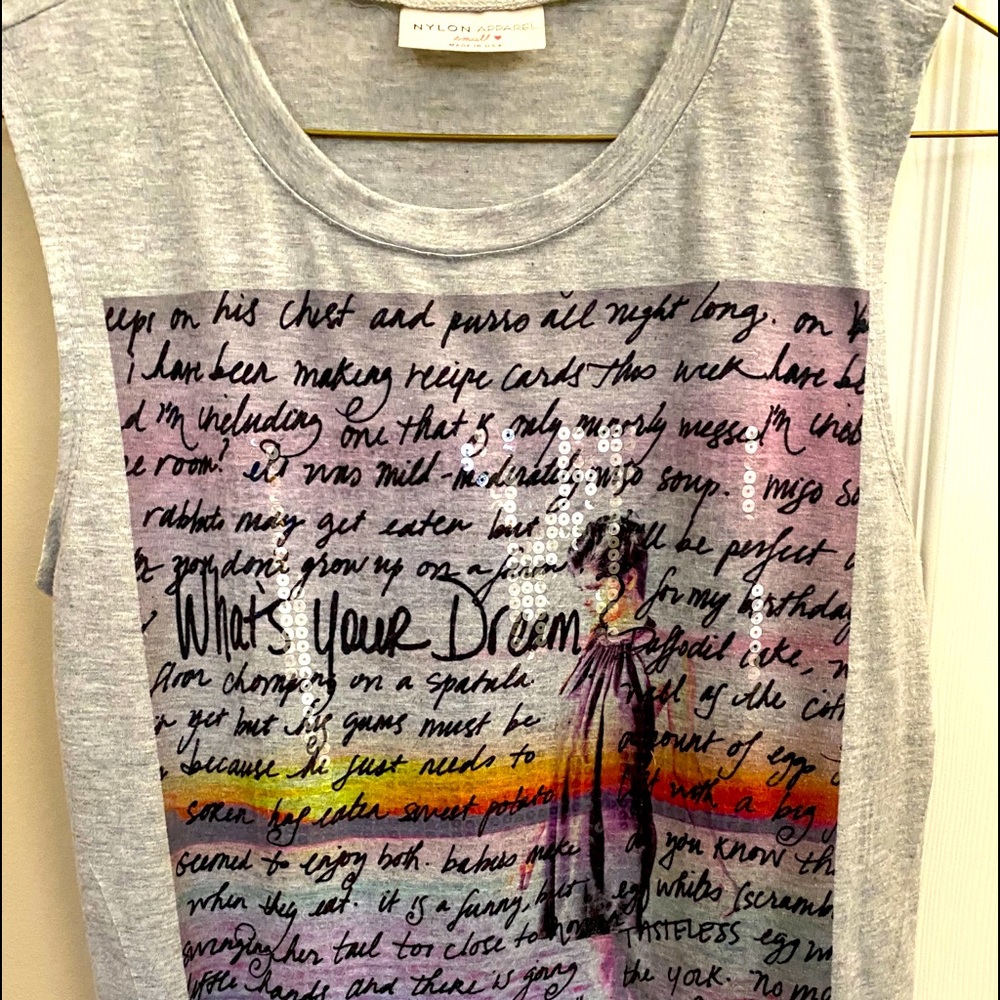 NYLON APPAREL
small
MADE IN U.S.A.
eeps on his chest and purrs all night long. on
i have been making recipe cards this week have be
d i'm including one that is only messed i'm incl
e room! was mild-moderately miso soup. miso so
rabbits may get eaten but ll be perfect
you don't grow up on a farm for my birthday
What's Your Dream
Daffodil cake, n
floor chomping on a spatula half of the
yet but his gums must be amount of egg
because he just needs to with a big
soren has eaten sweet potato as you know th
seemed to enjoy both. babies make egg whites (scramb
when they eat. it is a funny, but TASTELESS egg
swinging her tail too close to the york. no mo
little hands and there is going